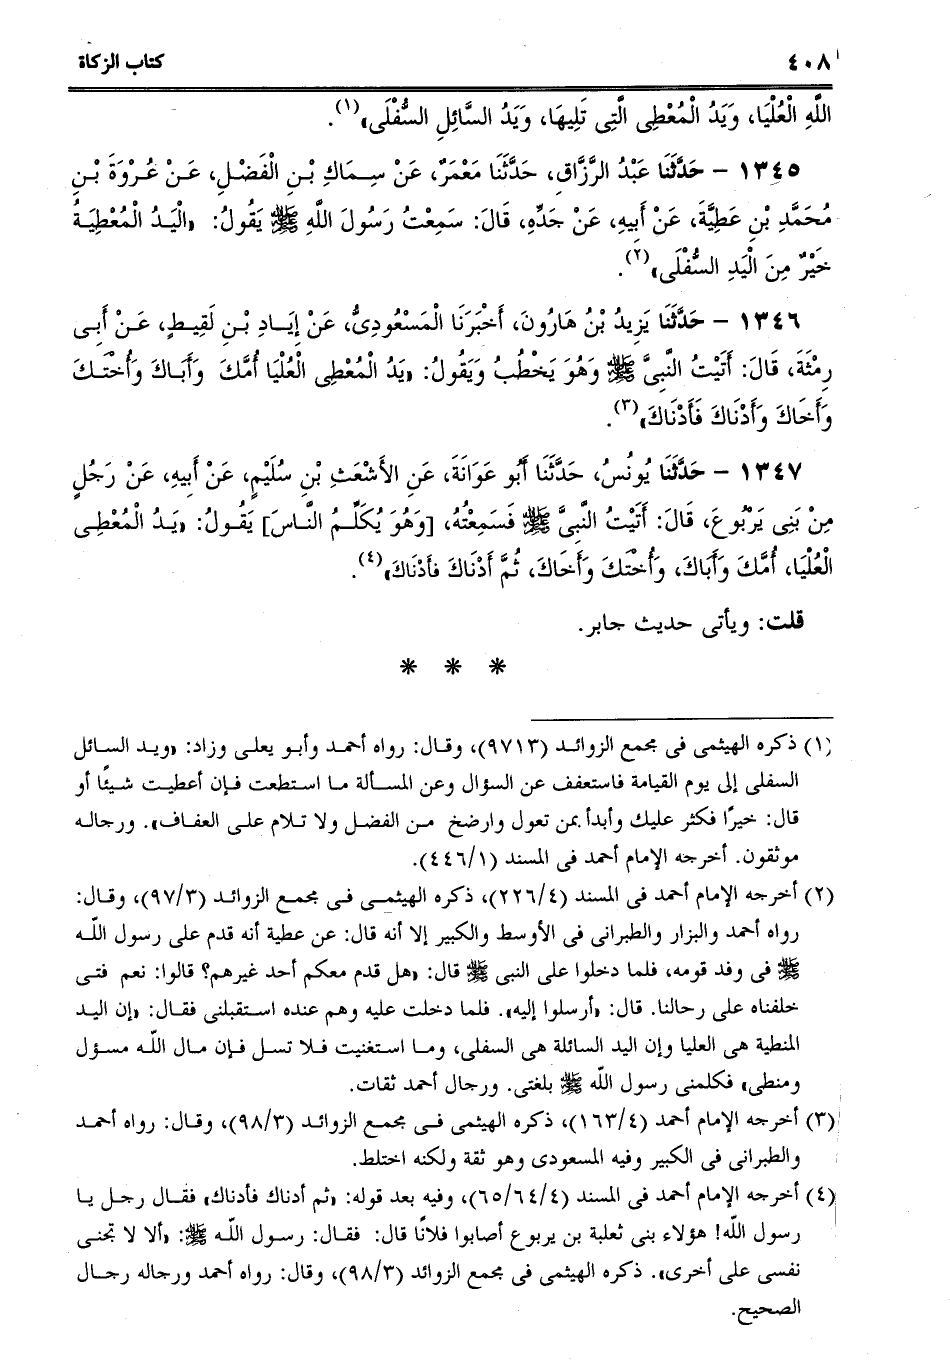 ٤٠٨ كتاب الزكاة
اللَّهِ الْعُلْيَا، وَيَدُ الْمُعْطِى الَّتِى تَلِيهَا، وَيَدُ السَّائِلِ السُّفْلَى»(١).
١٣٤٥ – حَدَّثَنَا عَبْدُ الرَّزَّاقِ، حَدَّثَنَا مَعْمَرٌ، عَنْ سِمَاكِ بْنِ الْفَضْلِ، عَنْ عُرْوَةَ بْنِ
مُحَمَّدِ بْنِ عَطِيَّةَ، عَنْ أَبِيهِ، عَنْ جَدِّهِ، قَالَ: سَمِعْتُ رَسُولَ اللَّهِ ﷺ يَقُولُ: «الْيَدُ الْمُعْطِيَةُ
خَيْرٌ مِنَ الْيَدِ السُّفْلَى»(٢).
١٣٤٦ – حَدَّثَنَا يَزِيدُ بْنُ هَارُونَ، أَخْبَرَنَا الْمَسْعُودِىُّ، عَنْ إِيَادِ بْنِ لَقِيطٍ، عَنْ أَبِى
رِمْثَةَ، قَالَ: أَتَيْتُ النَّبِىَّ ﷺ وَهُوَ يَخْطُبُ وَيَقُولُ: «يَدُ الْمُعْطِى الْعُلْيَا أُمَّكَ وَأَبَاكَ وَأُخْتَكَ
وَأَخَاكَ وَأَدْنَاكَ فَأَدْنَاكَ»(٣).
١٣٤٧ – حَدَّثَنَا يُونُسُ، حَدَّثَنَا أَبُو عَوَانَةَ، عَنِ الأَشْعَثِ بْنِ سُلَيْمٍ، عَنْ أَبِيهِ، عَنْ رَجُلٍ
مِنْ بَنِى يَرْبُوعَ، قَالَ: أَتَيْتُ النَّبِىَّ ﷺ فَسَمِعْتُهُ، [وَهُوَ يُكَلِّمُ النَّاسَ] يَقُولُ: «يَدُ الْمُعْطِى
الْعُلْيَا، أُمَّكَ وَأَبَاكَ، وَأُخْتَكَ وَأَخَاكَ، ثُمَّ أَدْنَاكَ فأَدْنَاكَ»(٤).
قلت: ويأتى حديث جابر.
* * *
(١) ذكره الهيثمى فى مجمع الزوائد (٩٧١٣)، وقال: رواه أحمد وأبو يعلى وزاد: «ويد السائل
السفلى إلى يوم القيامة فاستعفف عن السؤال وعن المسألة ما استطعت فإن أعطيت شيئًا أو
قال: خيرًا فكثر عليك وأبدأ بمن تعول وارضخ من الفضل ولا تلام على العفاف». ورجاله
موثقون. أخرجه الإمام أحمد فى المسند (٤٤٦/١).
(٢) أخرجه الإمام أحمد فى المسند (٢٢٦/٤)، ذكره الهيثمى فى مجمع الزوائد (٩٧/٣)، وقال:
رواه أحمد والبزار والطبرانى فى الأوسط والكبير إلا أنه قال: عن عطية أنه قدم على رسول اللَّه
ﷺ فى وفد قومه، فلما دخلوا على النبى ﷺ قال: «هل قدم معكم أحد غيرهم؟ قالوا: نعم فتى
خلفناه على رحالنا. قال: «أرسلوا إليه». فلما دخلت عليه وهم عنده استقبلنى فقال: «إن اليد
المنطية هى العليا وإن اليد السائلة هى السفلى، وما استغنيت فلا تسل فإن مال اللَّه مسؤل
ومنطى» فكلمنى رسول اللَّه ﷺ بلغتى. ورجال أحمد ثقات.
(٣) أخرجه الإمام أحمد (١٦٣/٤)، ذكره الهيثمى فى مجمع الزوائد (٩٨/٣)، وقال: رواه أحمد
والطبرانى فى الكبير وفيه المسعودى وهو ثقة ولكنه اختلط.
(٤) أخرجه الإمام أحمد فى المسند (٦٥/٦٤/٤)، وفيه بعد قوله: «ثم أدناك فأدناك» فقال رجل يا
رسول اللَّه! هؤلاء بنى ثعلبة بن يربوع أصابوا فلانًا قال: فقال: رسول اللَّه ﷺ: «ألا لا تجنى
نفسى على أخرى». ذكره الهيثمى فى مجمع الزوائد (٩٨/٣)، وقال: رواه أحمد ورجاله رجال
الصحيح.